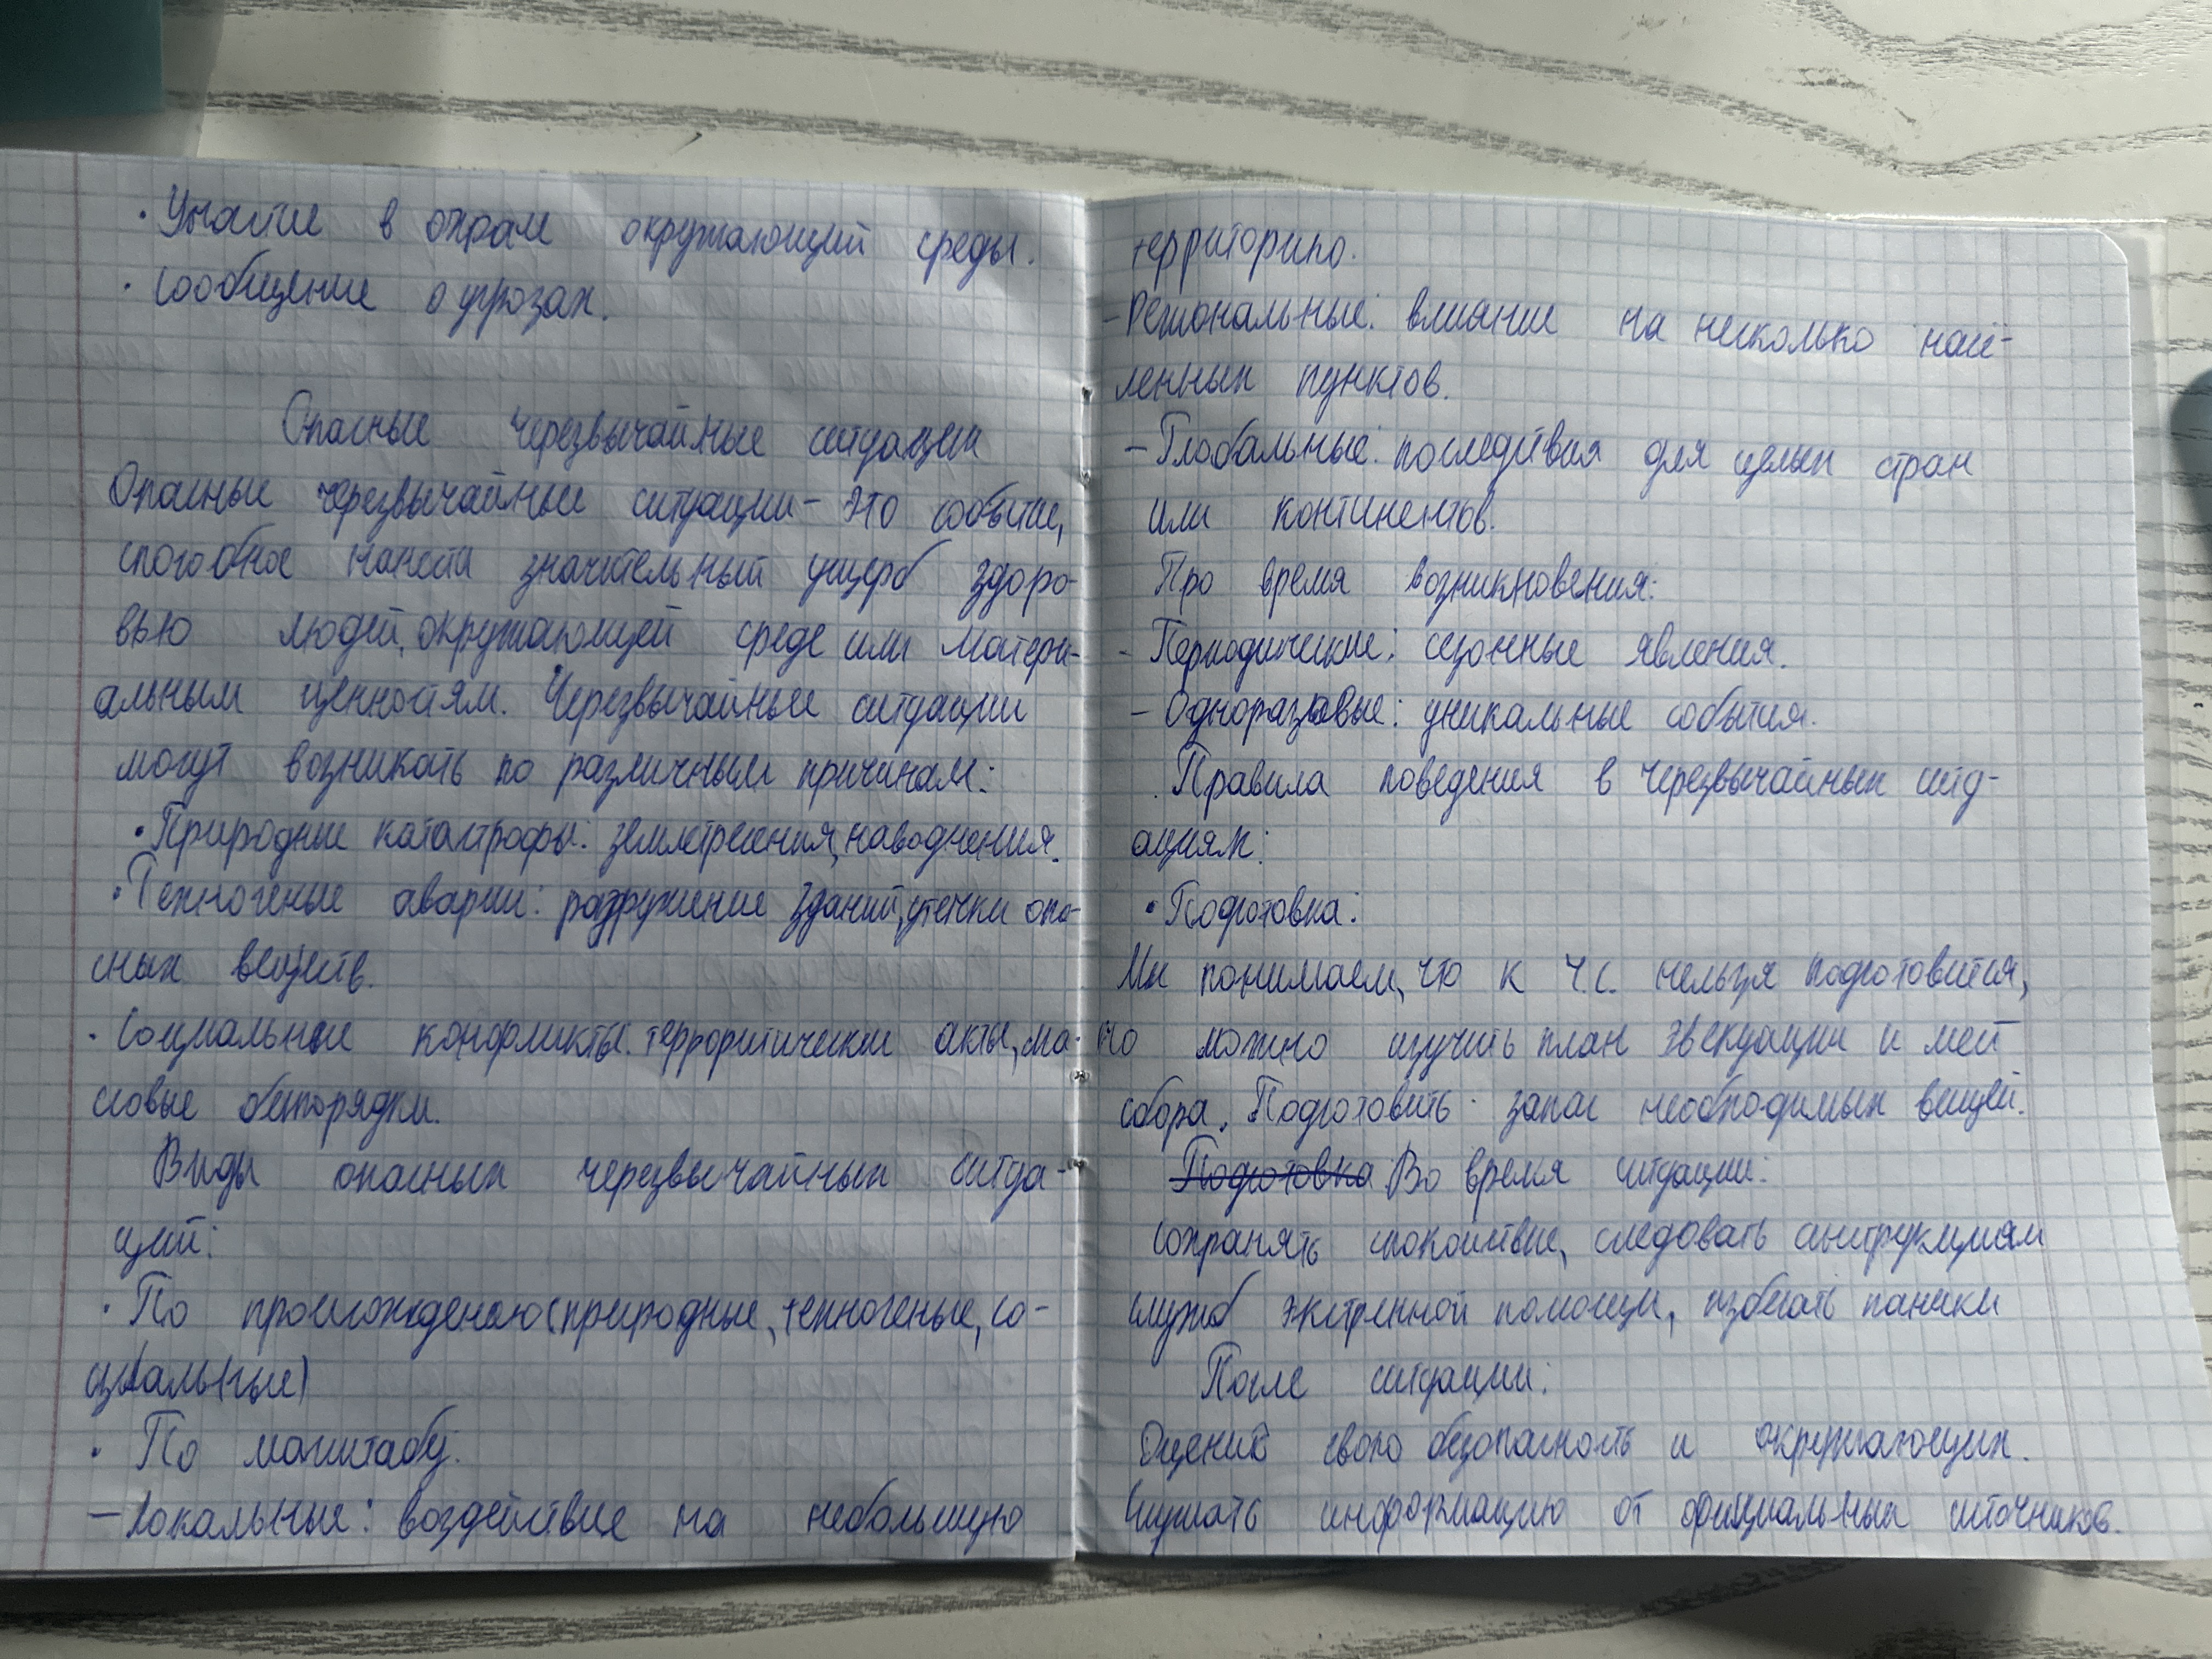 · Учатие в охране окружающий среды.
· Сообщение о угрозах.
Опасные черезвычайные ситуации
Опасные черезвычайные ситуации - это событие,
способное нанести значительный ущерб здоро-
вью людей, окружающей среде или матери-
альным ценностям. Черезвычайные ситуации
могут возникать по различным причинам:
· Природные катастрофы: землетресения, наводнения.
· Техногеные аварии: разрушение зданий, утечки опа-
сных веществ.
· Социальные конфликты. террористические акты, ма-
ссовые беспорядки.
Виды опасных черезвычайных ситуа-
ций:
· По происхождению (природные, техногеные, со-
циальные)
· По масштабу.
- Локальные: воздействие на небольшую
территорию.
- Региональные: влияние на несколько насе-
ленных пунктов.
- Глобальные: последствия для целых стран
или континентов.
Про время возникновения:
- Периодические: сезонные явления.
- Одноразовые: уникальные события.
Правила поведения в черезвычайных ситу-
ациях:
· Подготовка:
Мы понимаем, что к Ч.С. нельзя подготовится,
но можно изучить план эвекуации и мест
сбора. Подготовить запас необходимых вещей.
Подготовка Во время ситуации:
Сохранять спокойствие, следовать инструкциям
служб экстренной помощи, избегать паники
После ситуации:
Оценить свою безопасность и окружающих.
Слушать информацию от официальных источников.